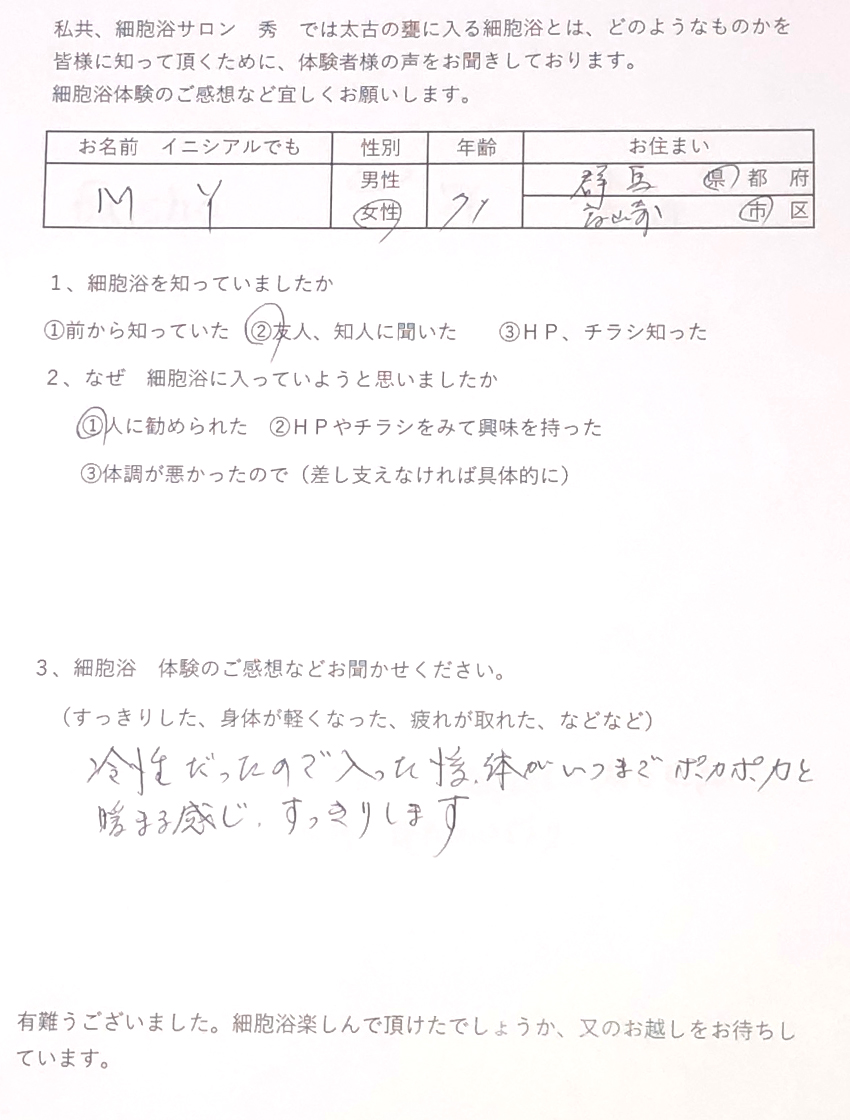 私共、細胞浴サロン　秀　では太古の甕に入る細胞浴とは、どのようなものかを
皆様に知って頂くために、体験者様の声をお聞きしております。
細胞浴体験のご感想など宜しくお願いします。
お名前　イニシアルでも　性別　年齢　お住まい
M Y　男性　女性　71　群馬　県　都　府
高崎　市　区
１、細胞浴を知っていましたか
①前から知っていた　②友人、知人に聞いた　　③ＨＰ、チラシ知った
２、なぜ　細胞浴に入っていようと思いましたか
①人に勧められた　②ＨＰやチラシをみて興味を持った
③体調が悪かったので（差し支えなければ具体的に）
３、細胞浴　体験のご感想などお聞かせください。
（すっきりした、身体が軽くなった、疲れが取れた、などなど）
冷性だったので入った後、体がいつまでポカポカと
暖まる感じ、すっきりします
有難うございました。細胞浴楽しんで頂けたでしょうか、又のお越しをお待ちし
ています。